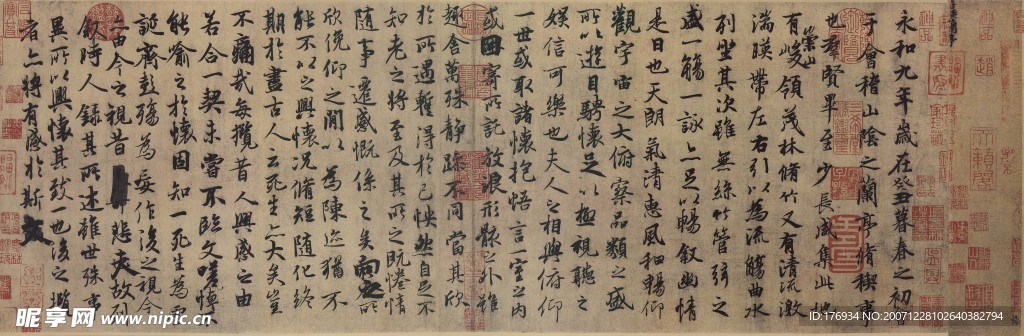 永和九年歲在癸丑暮春之初
于會稽山陰之蘭亭脩稧事
也羣賢畢至少長咸集此地
有崇山峻領茂林脩竹又有清流激
湍暎帶左右引以為流觴曲水
列坐其次雖無絲竹管弦之
盛一觴一詠亦足以暢敘幽情
是日也天朗氣清惠風和暢仰
觀宇宙之大俯察品類之盛
所以遊目騁懷足以極視聽之
娛信可樂也夫人之相與俯仰
一世或取諸懷抱悟言一室之內
或因寄所託放浪形骸之外雖
趣舍萬殊靜躁不同當其欣
於所遇暫得於己怏然自足不
知老之將至及其所之既惓情
隨事遷感慨係之矣向之所
欣俛仰之閒以為陳迹猶不
能不以之興懷況脩短隨化終
期於盡古人云死生亦大矣豈
不痛哉每攬昔人興感之由
若合一契未嘗不臨文嗟悼不
能喻之於懷固知一死生為虛
誕齊彭殤為妄作後之視今
亦由今之視昔悲夫故列
敘時人錄其所述雖世殊事
異所以興懷其致一也後之攬
者亦將有感於斯文
昵图网 www.nipic.cn
ID:176934 NO:20071228102640382794